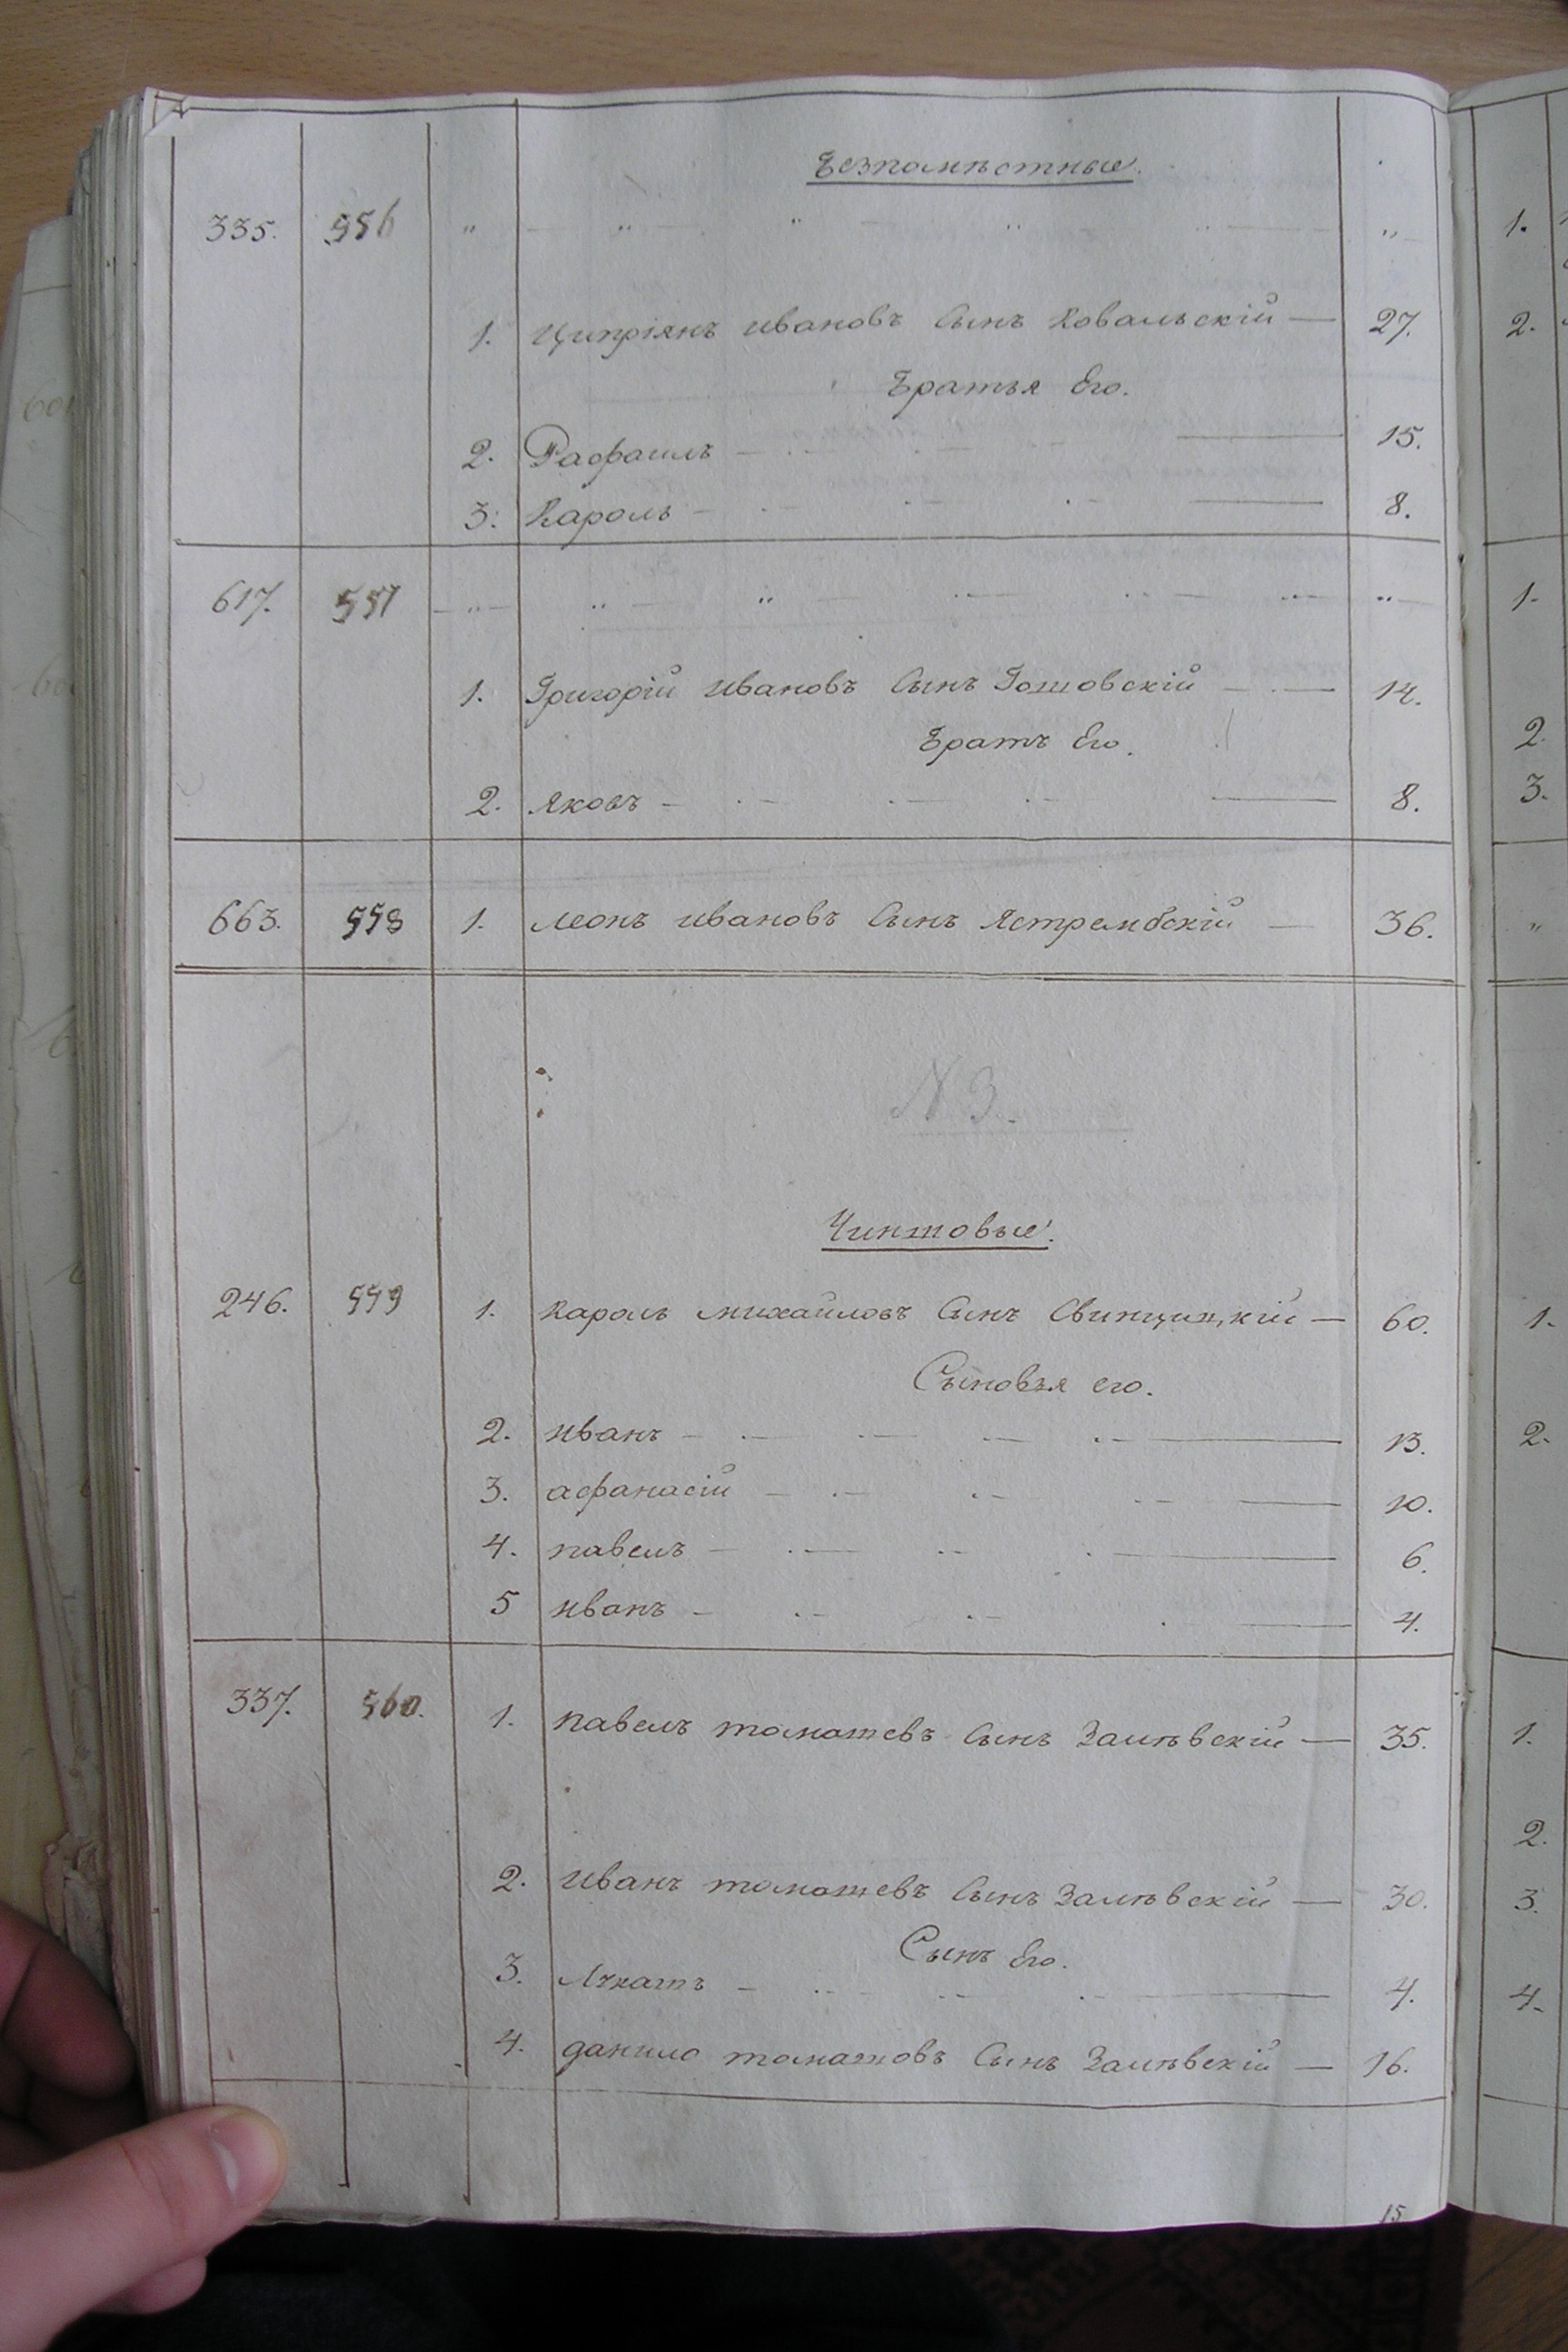 Безпомѣстные.
335. 556 " " " " " "
1. Ципріянъ ивановъ Сынъ Ковальскій — 27.
Братья Его.
2. Рафаилъ — 15.
3. Кароль — 8.
617. 557 " " " "
1. Григорій ивановъ Сынъ Гошовскій — 14.
Братъ Его.
2. яковъ — 8.
663. 558 1. леонъ ивановъ Сынъ Ястрембскій — 36.
N 3.
Чиншовые.
246. 559 1. Кароль михайловъ Сынъ Свинцицкій — 60.
Сыновья его.
2. иванъ — 13.
3. афанасій — 10.
4. павелъ — 6.
5 иванъ — 4.
337. 560. 1. павелъ томашевъ Сынъ Залѣвскій — 35.
2. иванъ томашевъ Сынъ Залѣвскій — 30.
Сынъ Его.
3. — 4.
4. данило томашовъ Сынъ Залѣвскій — 16.
15
1.
2.
1.
2.
3.
"
1.
2.
1.
2.
3.
4.